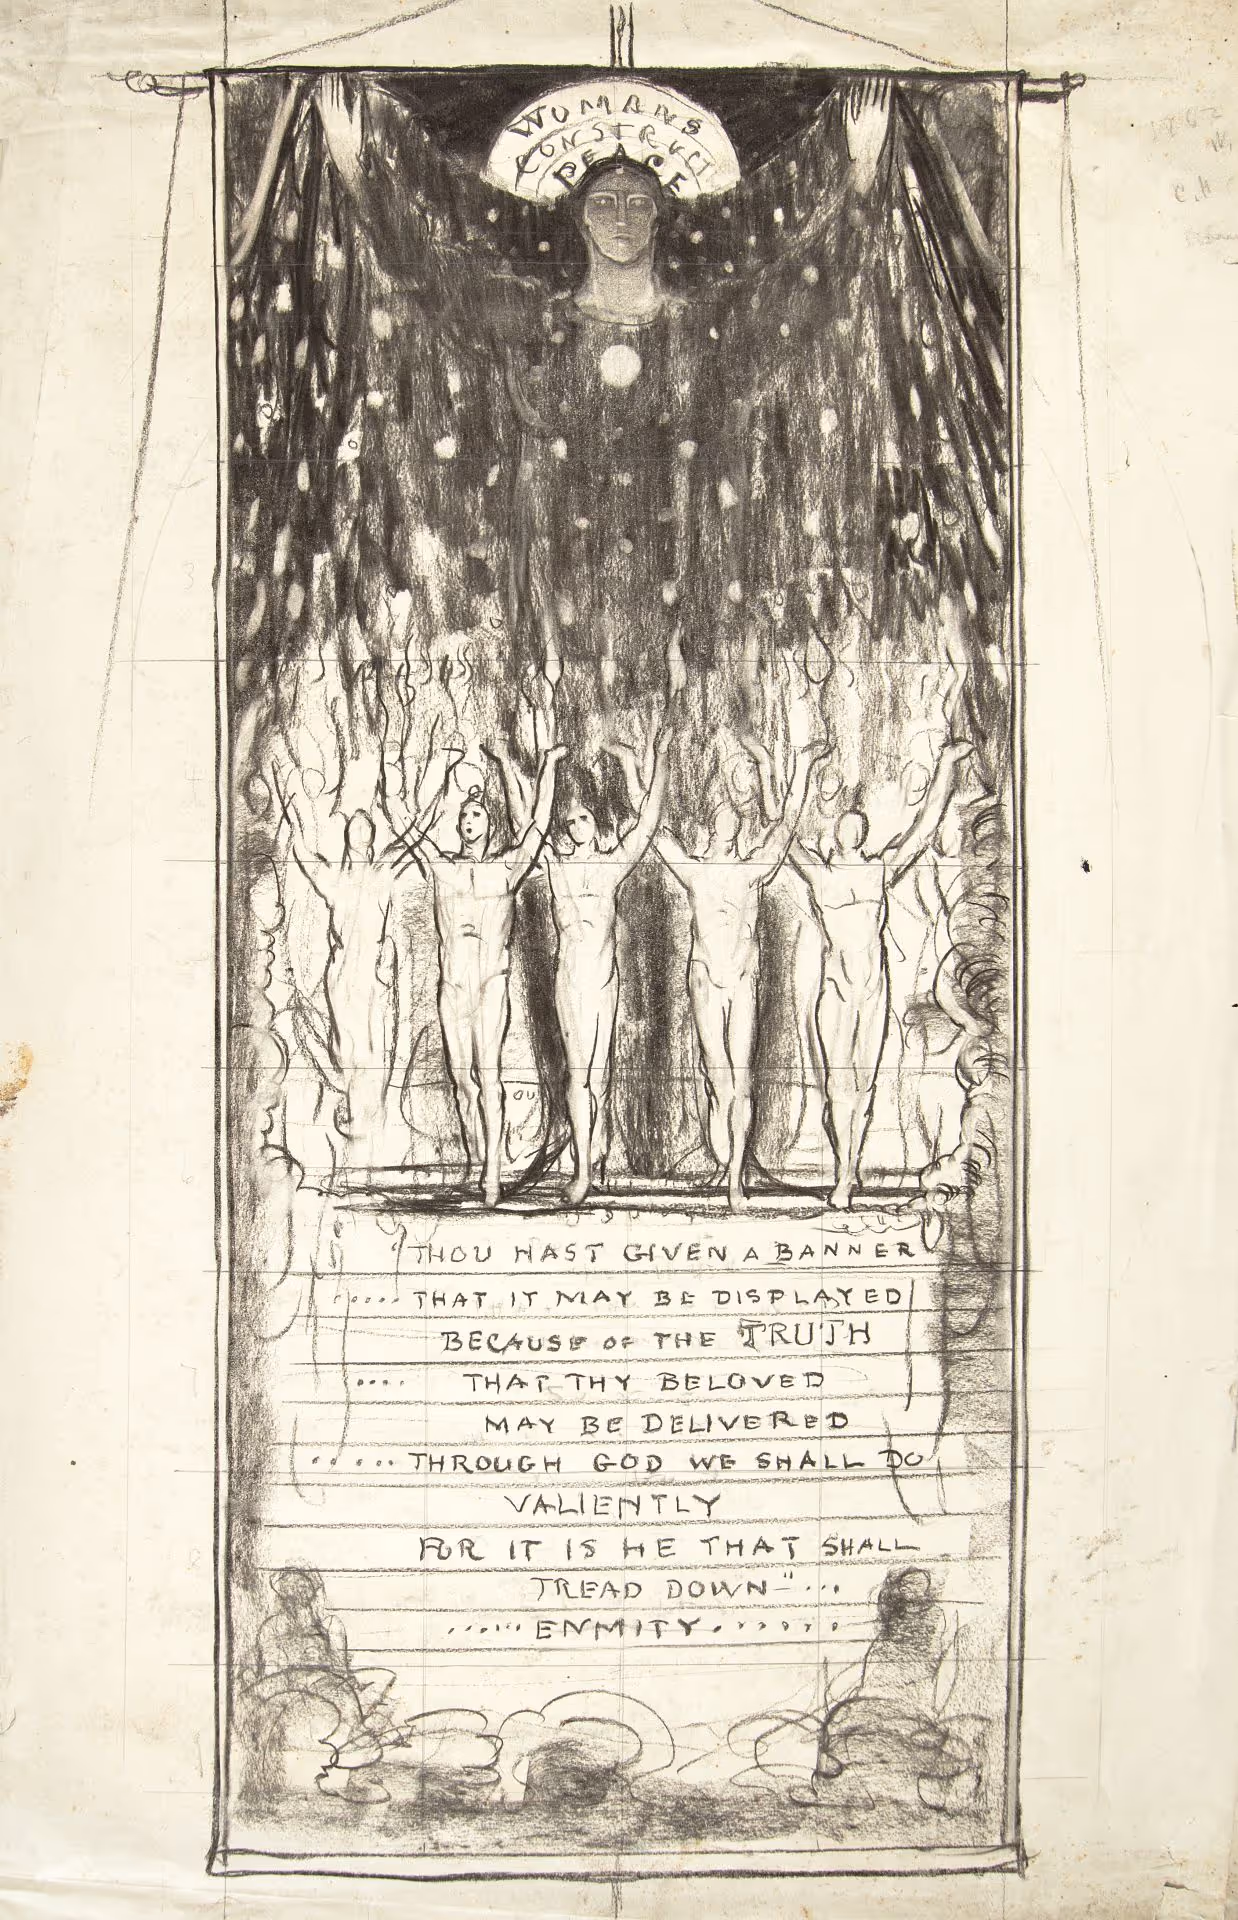 WOMANS
CONSTRUCT
PEACE
"THOU HAST GIVEN A BANNER
..... THAT IT MAY BE DISPLAYED
BECAUSE OF THE TRUTH
.... THAT THY BELOVED
MAY BE DELIVERED
..... THROUGH GOD WE SHALL DO
VALIENTLY
FOR IT IS HE THAT SHALL
TREAD DOWN" ...
...... ENMITY.......